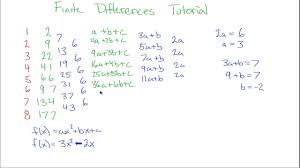 Finite Differences Tutorial
1 2 a+b+c 2a = 6
7 3a+b a = 3
2 9 6 4a+2b+c 2a
13 5a+b
3 22 6 9a+3b+c 2a
19 7a+b 3a+b = 7
4 41 6 16a+4b+c 2a
25 9a+b 9+b = 7
5 66 6 25a+5b+c 2a
31 11a+b b = -2
6 97 6 36a+6b+c
37
7 134 6
43
8 177
f(x) = ax²+bx+c
f(x) = 3x²-2x